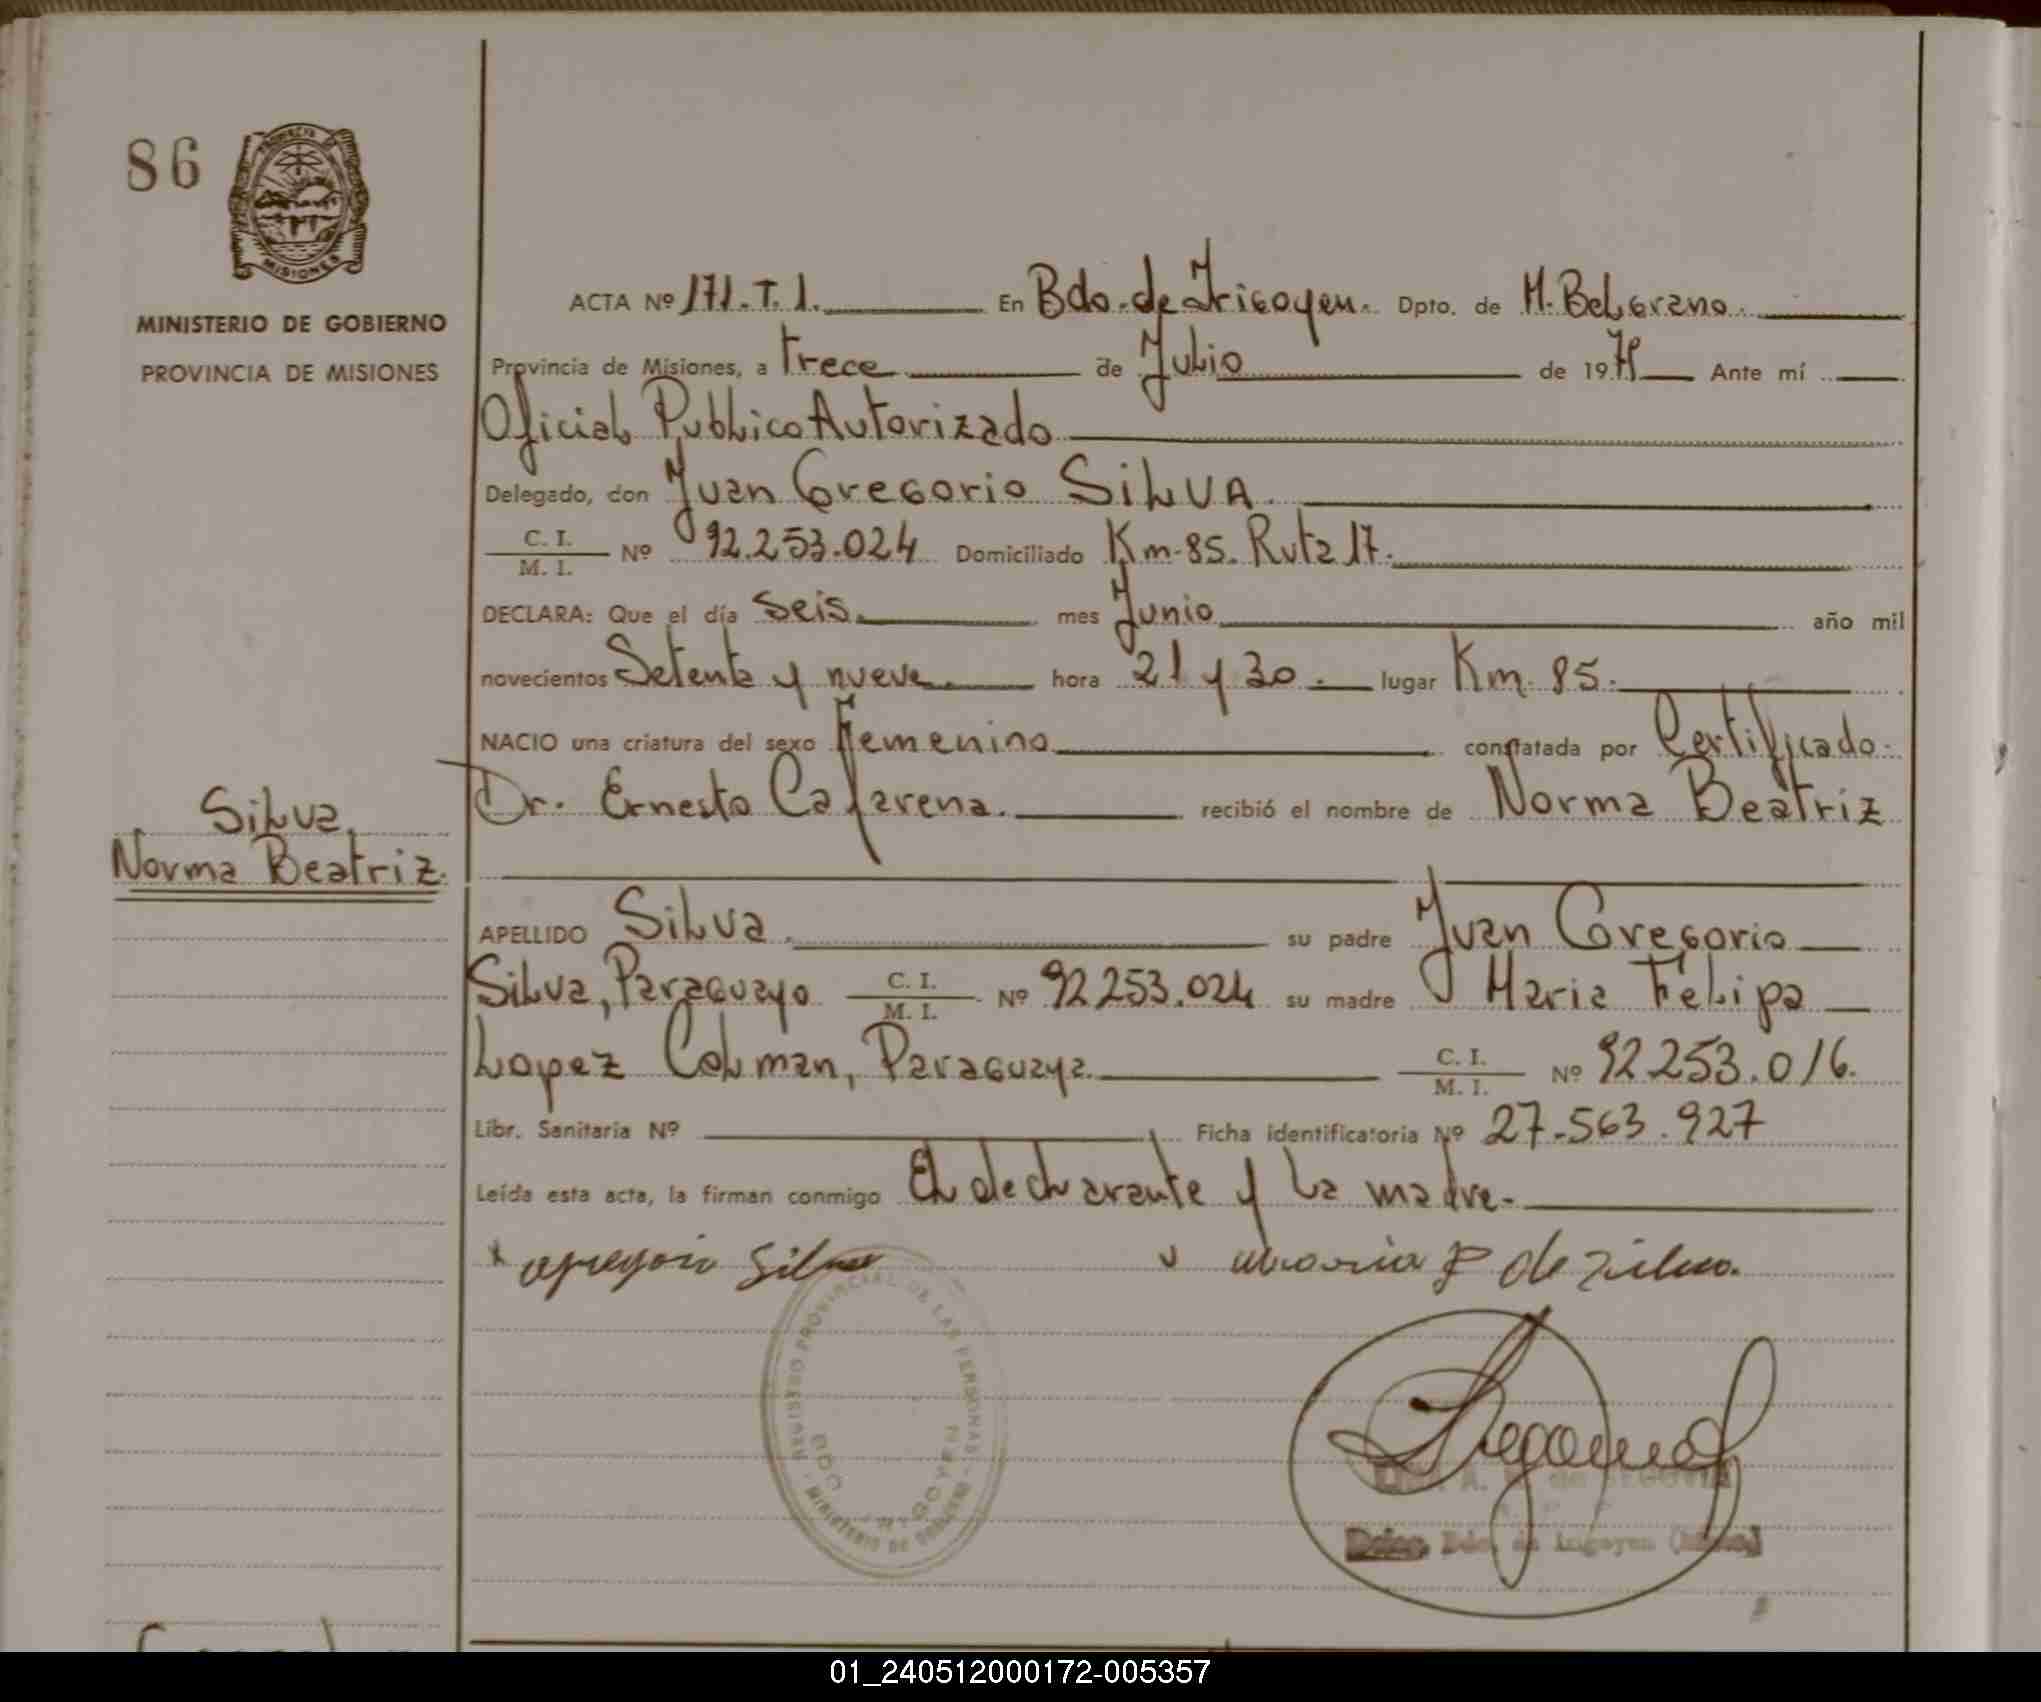 86
PROVINCIA
MISIONES
MINISTERIO DE GOBIERNO
PROVINCIA DE MISIONES
ACTA Nº 171. T. 1. En Bdo. de Irigoyen. Dpto. de M. Belgrano.
Provincia de Misiones, a trece de Julio de 1979 Ante mí
Oficial Publico Autorizado
Delegado, don Juan Gregorio SILVA.
C. I.
M. I. Nº 92.253.024 Domiciliado Km-85. Ruta 17.
DECLARA: Que el día Seis. mes Junio año mil
novecientos Setenta y nueve. hora 21 y 30. lugar Km. 85.
NACIO una criatura del sexo Femenino constatada por Certificado.
Dr. Ernesto Cafarena. recibió el nombre de Norma Beatriz
Silva,
Norma Beatriz.
APELLIDO Silva. su padre Juan Gregorio
Silva, Paraguayo C. I. M. I. Nº 92 253.024 su madre Maria Felipa
Lopez Colman, Paraguaya. C. I. M. I. Nº 92 253.016.
Libr. Sanitaria Nº Ficha identificatoria Nº 27-563.927
Leída esta acta, la firman conmigo El declarante y la madre.
Gregorio Silva Maria F de Silva.
REGISTRO PROVINCIAL DE LAS PERSONAS
BDO. IRIGOYEN
MINISTERIO DE GOBIERNO
A. de SEGOVIA
Deleg. Bdo. de Irigoyen (Mnes)
01_240512000172-005357